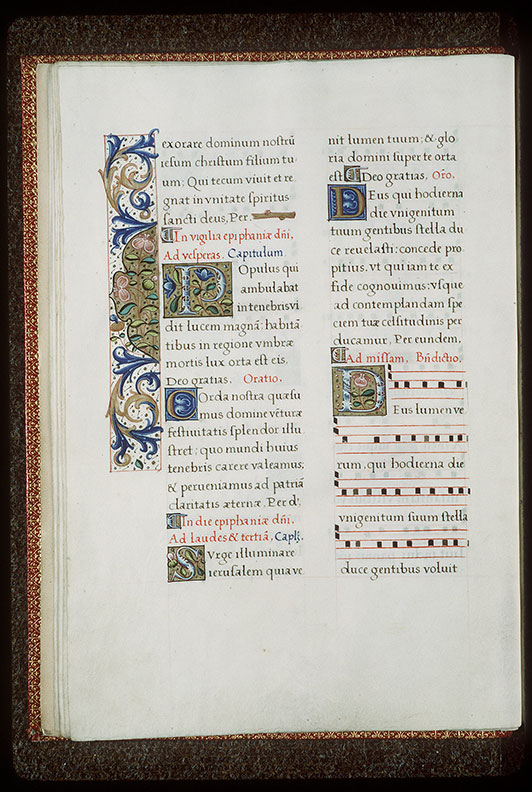 exorare dominum nostrũ
iesum christum filium tu
um: Qui tecum viuit et re
gnat in vnitate spiritus
sancti deus, Per.
In vigilia epiphaniæ dñi,
Ad vesperas, Capitulum
Populus qui
ambulabat
in tenebris vi
dit lucem magnã: habitã
tibus in regione vmbræ
mortis lux orta est eis.
Deo gratias, Oratio.
Corda nostra quæsu
mus domine vẽturæ
festiuitatis splendor illu
stret: quo mundi huius
tenebris carere valeamus;
& perueniamus ad patriã
claritatis æternæ, Per d'.
In die epiphaniæ dñi,
Ad laudes & tertiã, Capl̃.
Surge illuminare
ierusalem quia ve
nit lumen tuum: & glo
ria domini super te orta
est Deo gratias, Oro.
Deus qui hodierna
die vnigenitum
tuum gentibus stella du
ce reuelasti: concede pro
pitius, vt qui iam te ex
fide cognouimus: vsque
ad contemplandam spe
ciem tuæ celsitudinis per
ducamur, Per eundem,
Ad missam, Bñdictio.
Deus lumen ve
rum, qui hodierna die
vnigenitum suum stella
duce gentibus voluit